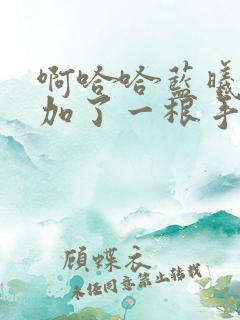 啊哈哈蓝曦
加了一根手
顾蝶衣
未经同意禁止转载